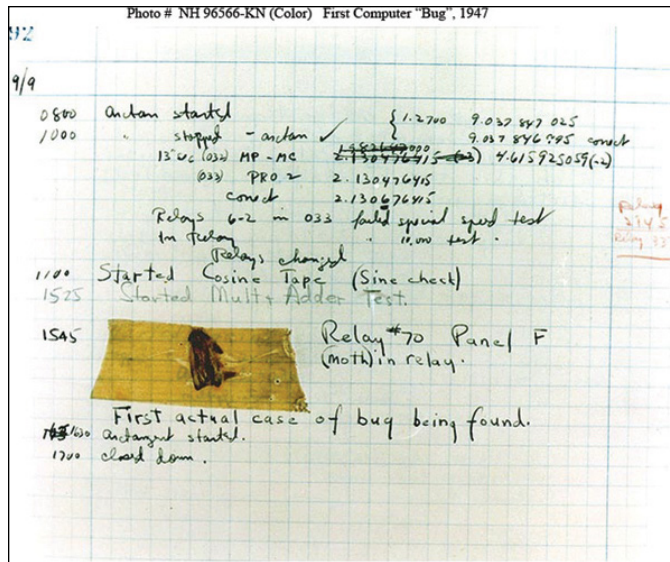 Photo # NH 96566-KN (Color) First Computer “Bug”, 1947
92
9/9
0800 arctan started { 1.2700 9.037 847 025
1000 " stopped - arctan ✓ 9.037 846 995 correct
13"uc (032) MP - MC 2.130476415 (-3) 4.615925059(-2)
(033) PRO 2 2.130476415
correct 2.130676415
Relays 6-2 in 033 failed special speed test
In Relay " 10,000 test .
Relays changed
1100 Started Cosine Tape (Sine check)
1525 Started Mult + Adder Test.
1545 Relay #70 Panel F
(moth) in relay.
First actual case of bug being found.
1630 arctangent started.
1700 closed down .
Relay
2145
Relay 33